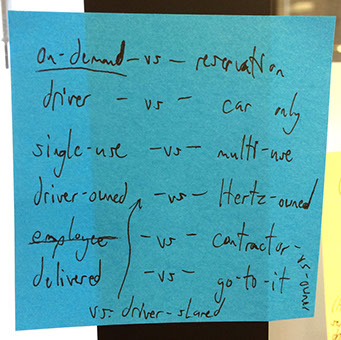 on-demand - vs - reservation
driver - vs - car only
single-use - vs - multi-use
driver-owned - vs - Hertz-owned
employee - vs - contractor - vs-owner
delivered - vs - go-to-it
vs. driver-shared